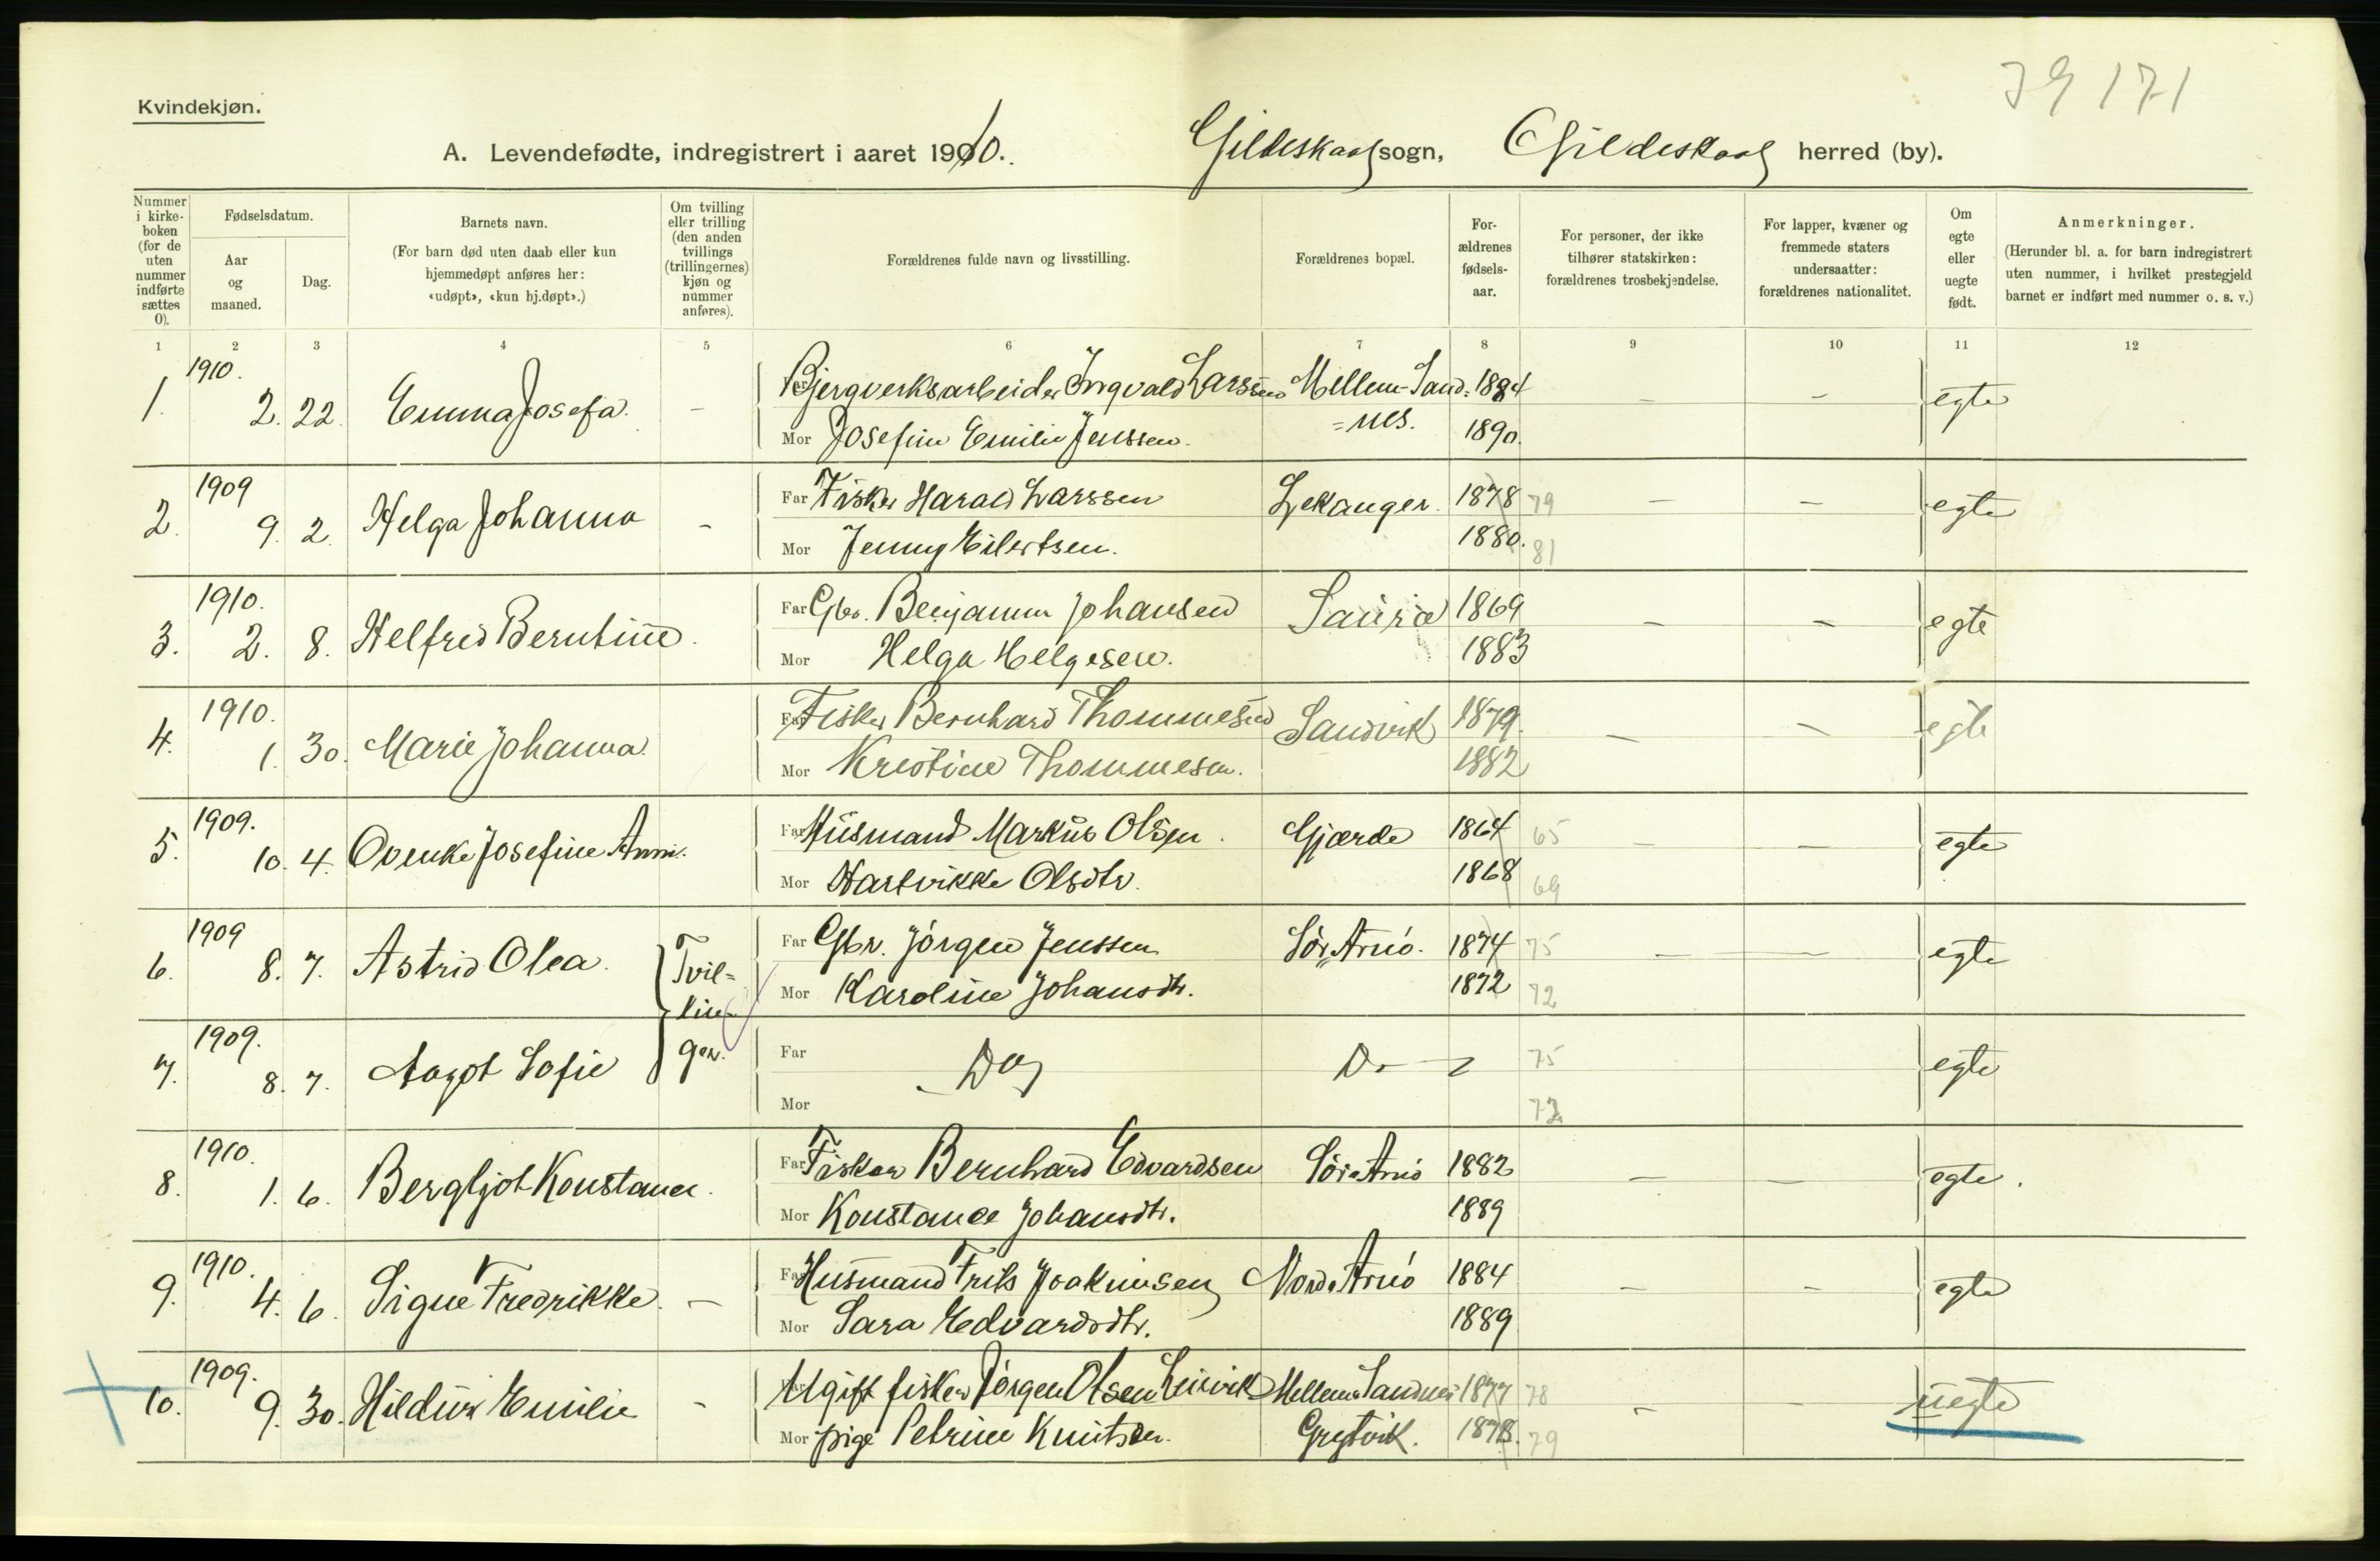 Kvindekjøn.
39 171
A. Levendefødte, indregistrert i aaret 1910. Gildeskaal sogn, Gildeskaal herred (by).
Nummer i kirkeboken (for de uten nummer indførte sættes 0).
Fødselsdatum.
Aar og maaned.
Dag.
Barnets navn.
(For barn død uten daab eller kun hjemmedøpt anføres her: «udøpt», «kun hj.døpt».)
Om tvilling eller trilling (den anden tvillings (trillingernes) kjøn og nummer anføres).
Forældrenes fulde navn og livsstilling.
Forældrenes bopæl.
Forældrenes fødselsaar.
For personer, der ikke tilhører statskirken: forældrenes trosbekjendelse.
For lapper, kvæner og fremmede staters undersaatter: forældrenes nationalitet.
Om egte eller uegte født.
Anmerkninger.
(Herunder bl. a. for barn indregistrert uten nummer, i hvilket prestegjeld barnet er indført med nummer o. s. v.)
1 2 3 4 5 6 7 8 9 10 11 12
1. 1910. 2. 22. Emma Josefa. - Far Bjergverksarbeider Ingvald Larssen Mellem-Sand= 1884 - - egte
Mor Josefine Emilie Jenssen. =nes. 1890.
2. 1909 9. 2. Helga Johanna - Far Fisker Harald Larssen Lekanger. 1878 79 - - egte
Mor Jenny Eilertsen. 1880. 81
3. 1910. 2. 8. Helfred Berntine. Far Gbr. Benjamin Johansen Saura 1869 - - egte
Mor Helga Helgesen. 1883
4. 1910. 1. 30. Marie Johanna. Far Fisker Bernhard Thommesen Sandvik 1879. - - egte
Mor Kristine Thommesen. 1882
5. 1909. 10. 4. Ovenke Josefine Anni. Far Husmand Markus Olsen. Gjærde 1864 65 - - egte
Mor Hartvikke Olsdtr. 1868 69
6. 1909 8. 7. Astrid Olea. Tvil= Far Gbr. Jørgen Jenssen Sør-Arnö. 1874 75 - - egte
lin= Mor Karoline Johansdtr. 1872 72
7. 1909. 8. 7. Aagot Sofie ger. Far Do Do 75 egte
Mor 72
8. 1910. 1. 6. Bergljot Konstance. Far Fisker Bernhard Edvardsen Sør-Arnö 1882 - - egte.
Mor Konstance Johansdtr. 1889
9. 1910. 4. 6. Signe Fredrikke. - Far Husmand Frits Joakimsen Nord-Arnö 1884 - - egte
Mor Sara Edvardsdtr. 1889
10. 1909. 9. 30. Hildur Emilie - Far Ugift fisker Jørgen Olsen Leirvik Mellem-Sandnes 1877 78 - - uegte
Mor pige Petrine Knutsen. Grytvik. 1878. 79